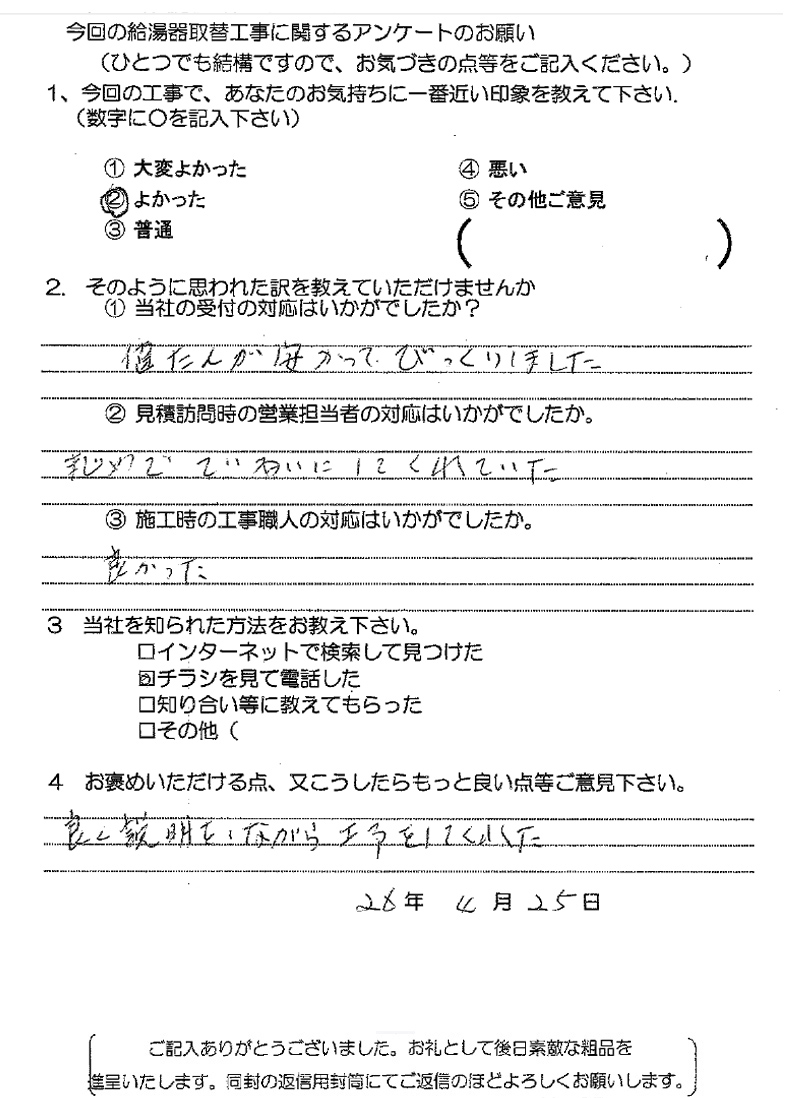 今回の給湯器取替工事に関するアンケートのお願い
(ひとつでも結構ですので、お気づきの点等をご記入ください。)
1、今回の工事で、あなたのお気持ちに一番近い印象を教えて下さい.
(数字に〇を記入下さい)
① 大変よかった ④ 悪い
② よかった ⑤ その他ご意見
③ 普通 ( )
2. そのように思われた訳を教えていただけませんか
① 当社の受付の対応はいかがでしたか?
びっくりしました
② 見積訪問時の営業担当者の対応はいかがでしたか。
ていねいにしてくれていた
③ 施工時の工事職人の対応はいかがでしたか。
良かった
3 当社を知られた方法をお教え下さい。
□インターネットで検索して見つけた
☑チラシを見て電話した
□知り合い等に教えてもらった
□その他(
4 お褒めいただける点、又こうしたらもっと良い点等ご意見下さい。
良く説明をしながら工事をしてくれた
28年 4月 25日
ご記入ありがとうございました。お礼として後日素敵な粗品を
進呈いたします。同封の返信用封筒にてご返信のほどよろしくお願いします。